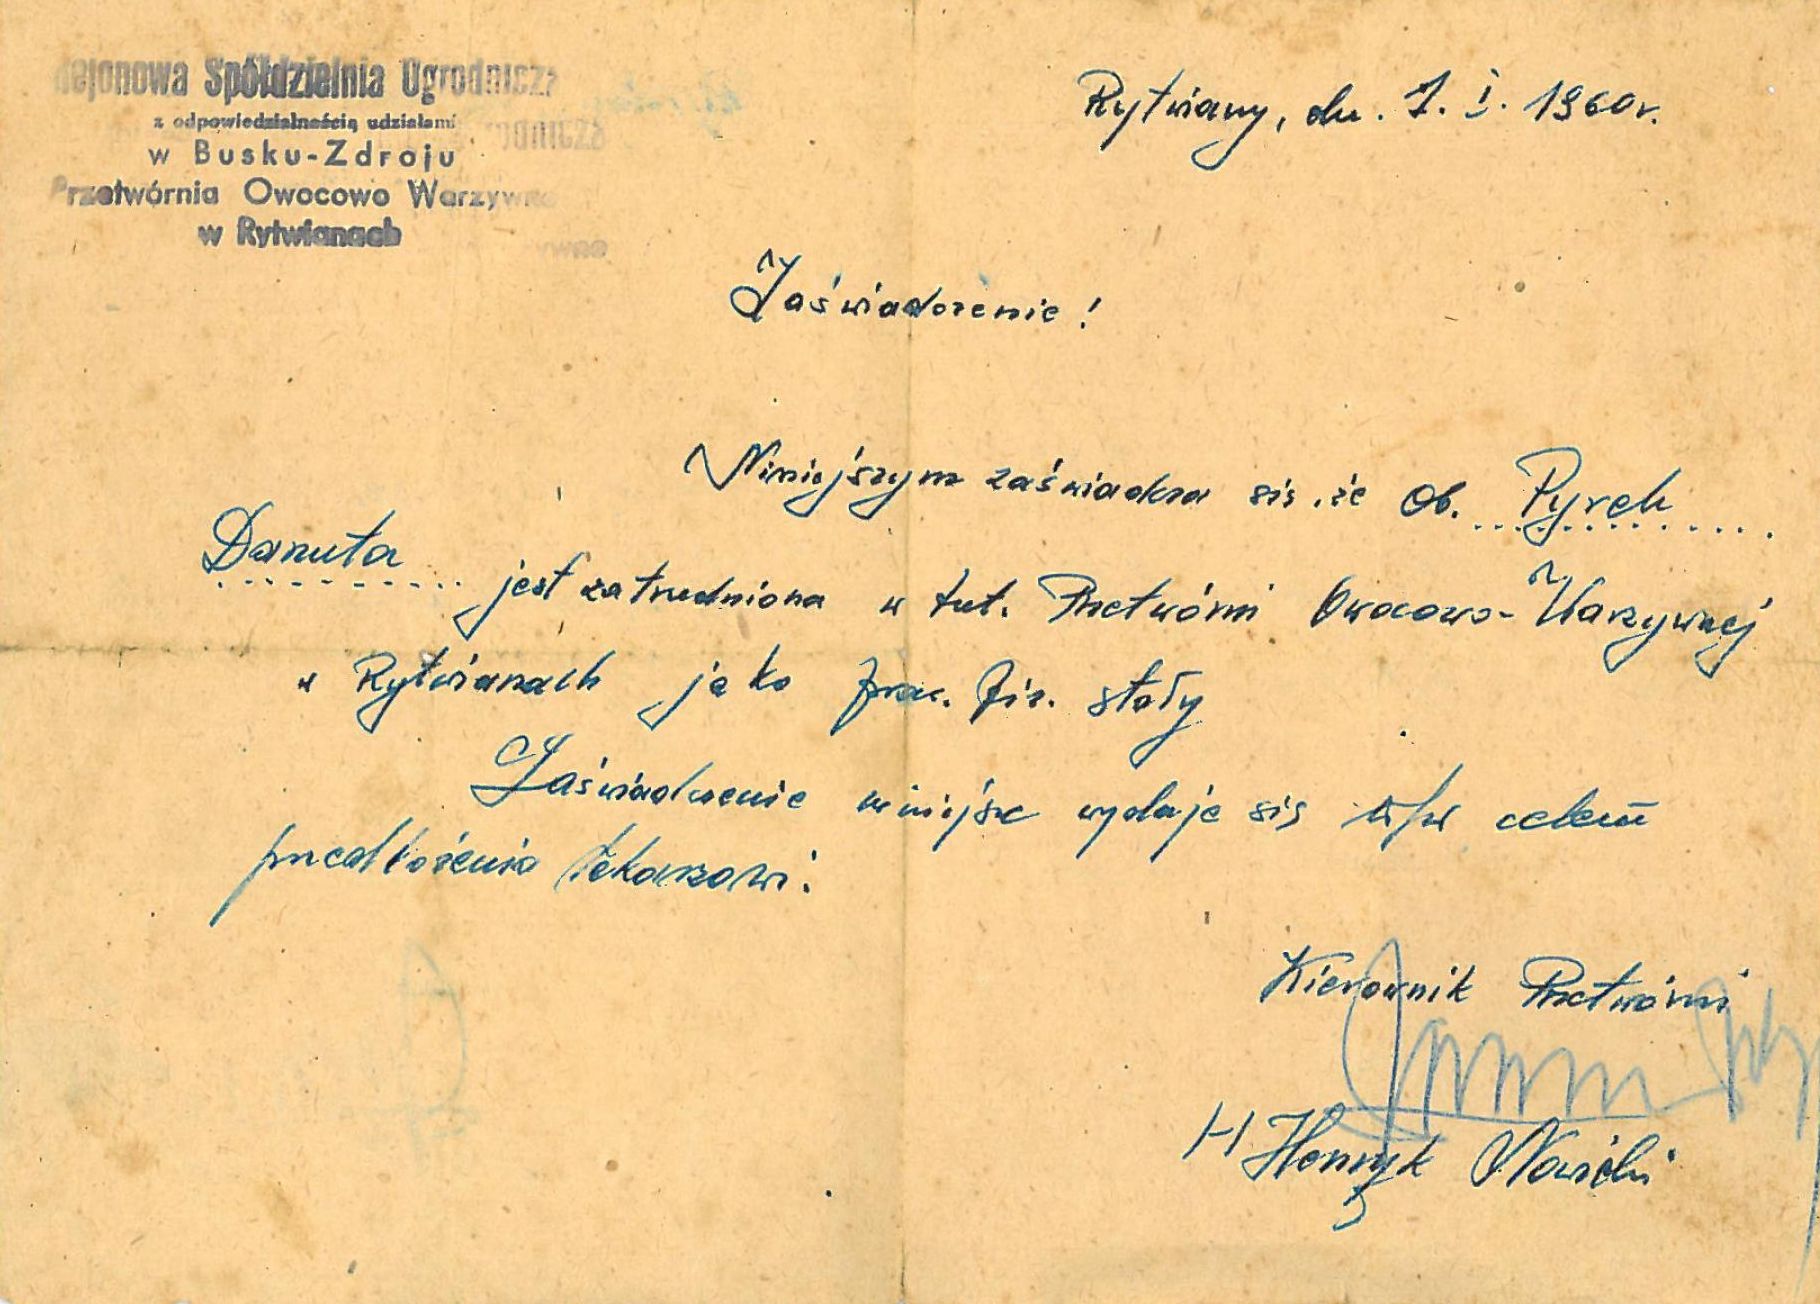 Rejonowa Spółdzielnia Ogrodnicza
z odpowiedzialnością udziałami
w Busku-Zdroju
Przetwórnia Owocowo Warzywna
w Rytwianach
Rytwiany, dn. 7. I. 1960 r.
Zaświadczenie!
Niniejszym zaświadcza się, że Ob. Pyrek
Danuta jest zatrudniona w tut. Przetwórni Owocowo-Warzywnej
w Rytwianach jako prac. fiz. stały
Zaświadczenie niniejsze wydaje się w/w celem
przedłożenia lekarzowi.
Kierownik Przetwórni
Henryk